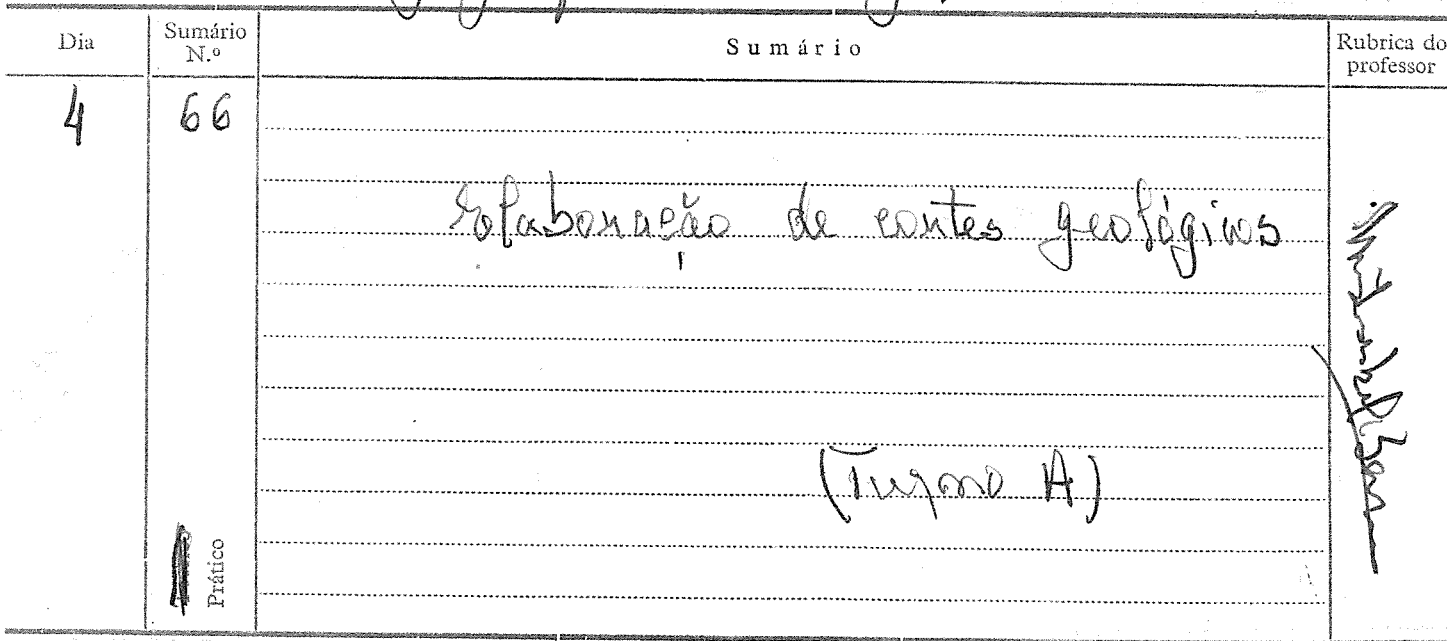 Dia
Sumário
N.º
Sumário
Rubrica do
professor
4
66
Elaboração de cortes geológicos
(Turno A)
Prático